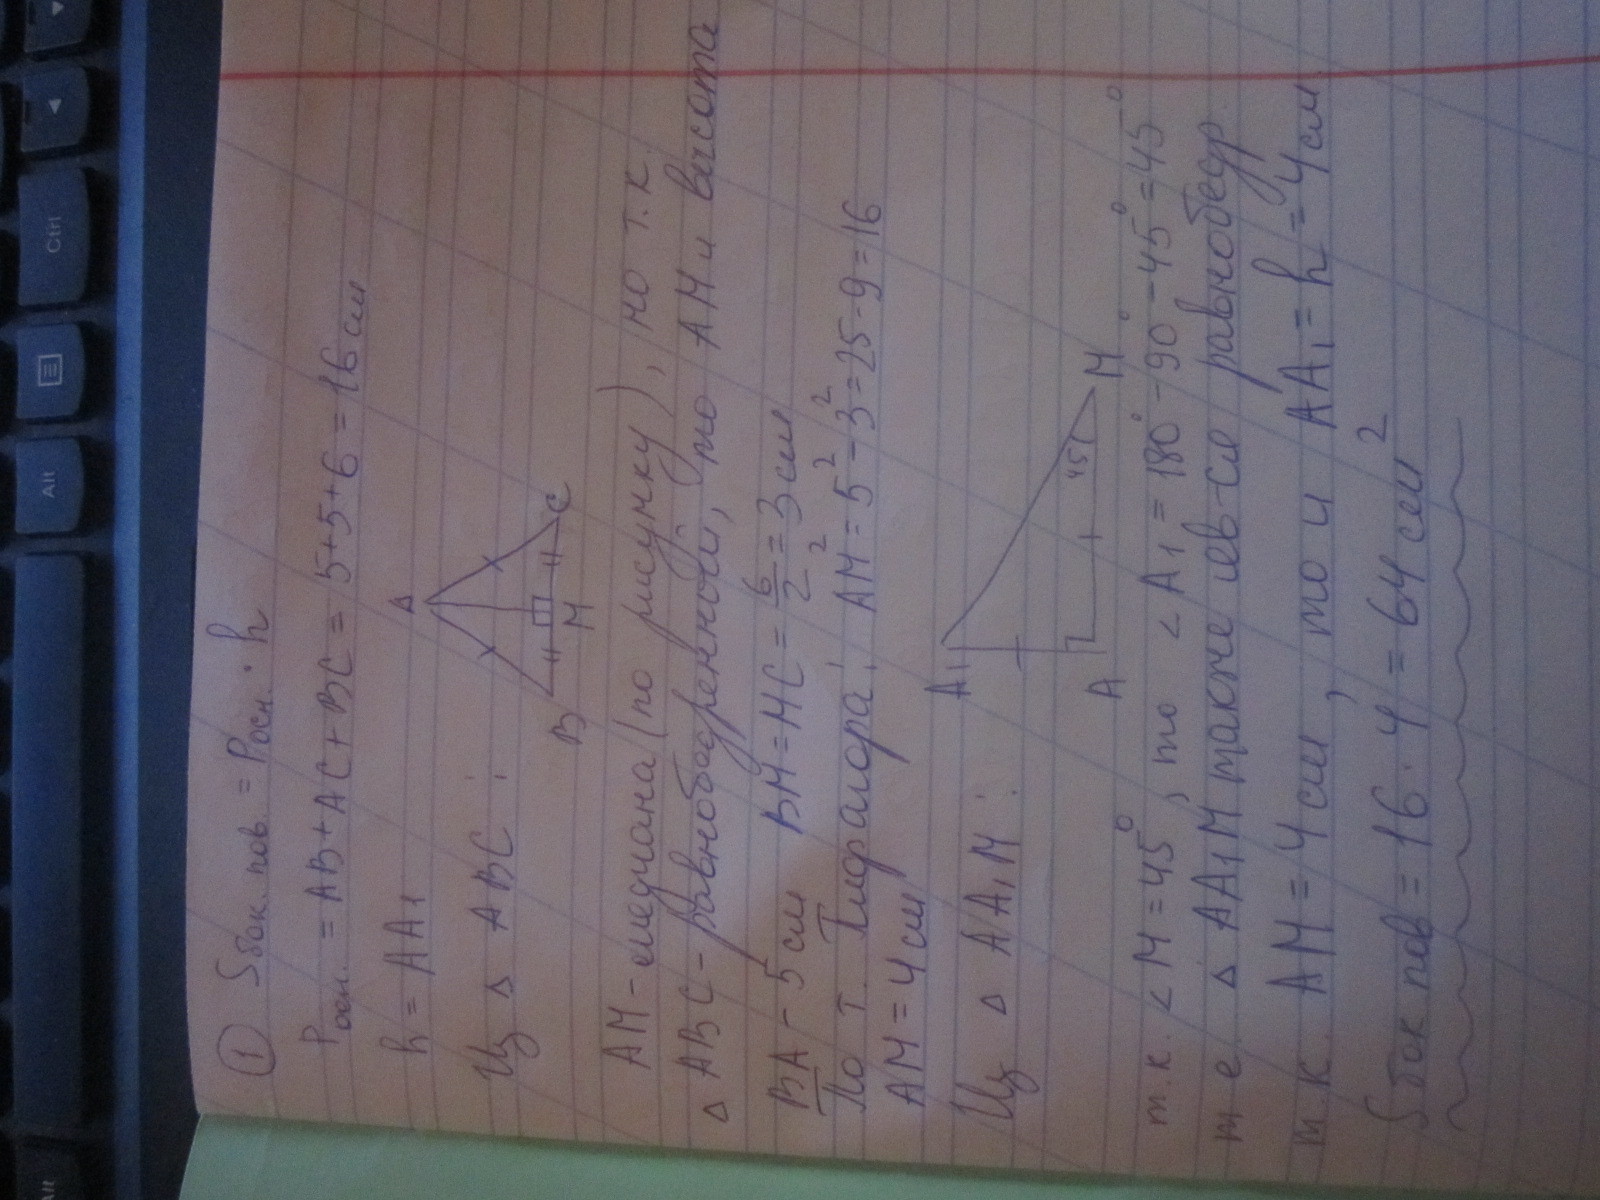 ① Sбок. пов. = Pосн. · h
Pосн. = AB + AC + BC = 5+5+6 = 16 см
h = AA1
Из △ ABC:
A
B
M
C
AM - медиана (по рисунку), но т. к.
△ ABC - равнобедренный, то AM и высота
BA - 5 см BM = MC = 6/2 = 3 см
По т. Пифагора: AM² = 5² - 3² = 25 - 9 = 16
AM = 4 см
Из △ AA1M:
A1
A
45
M
т. к. <M = 45°, то <A1 = 180° - 90° - 45° = 45°
т е. △ AA1M также яв-ся равнобедр.
т. к. AM = 4 см, то и AA1 = h = 4 см
Sбок пов = 16 · 4 = 64 см²
Alt
Ctrl
Alt